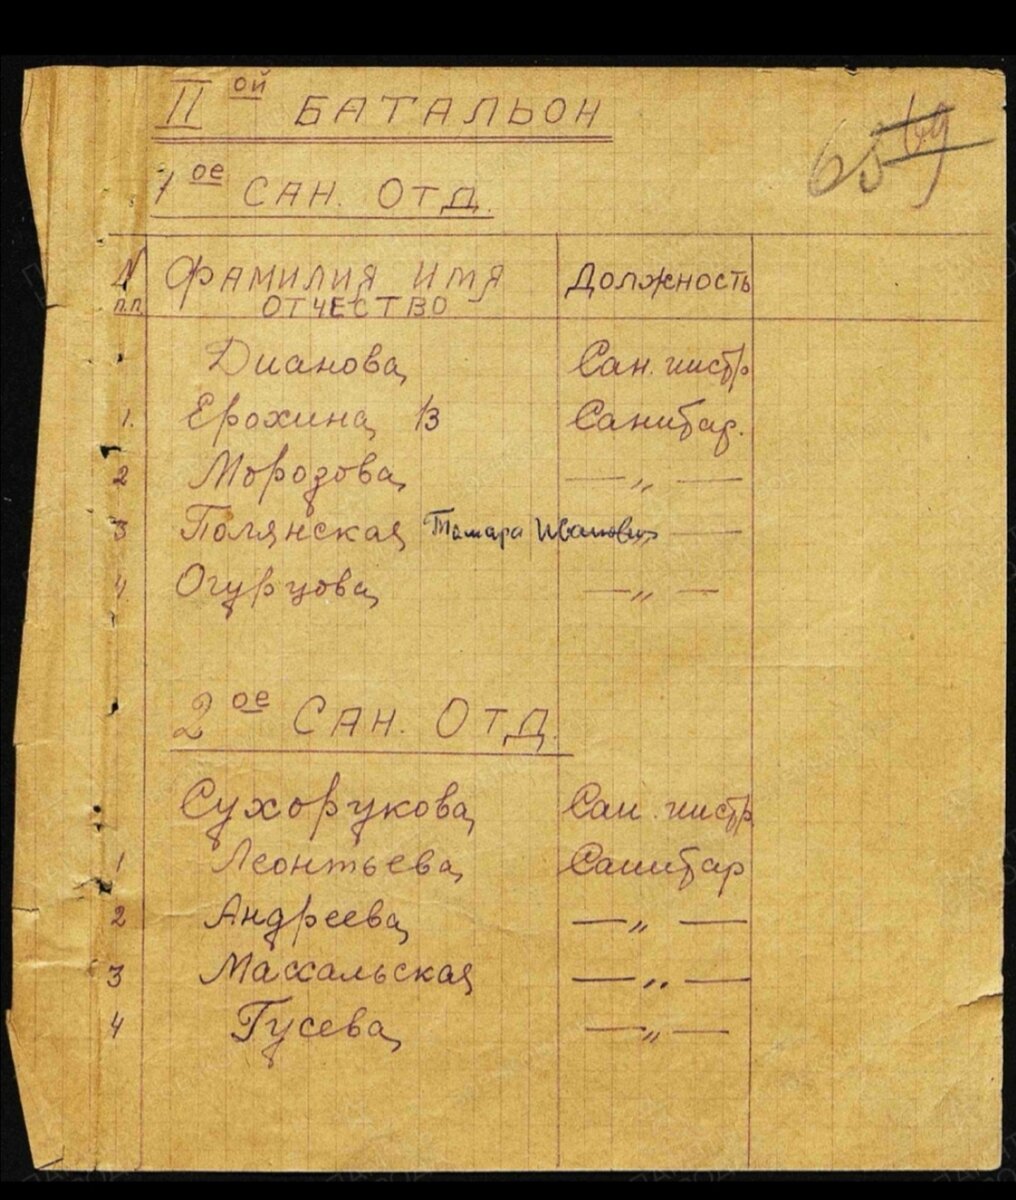 II ой БАТАЛЬОН
65 69
1 ое САН. ОТД.
N п.п. ФАМИЛИЯ ИМЯ ОТЧЕСТВО Должность
Дианова Сан. инстр.
1. Ерохина В Санитар.
2 Морозова —„—
3 Полянская Тамара Ивановна —„—
4 Огурцова —„—
2 ое САН. ОТД.
Сухорукова Сан. инстр.
1 Леонтьева Санитар
2 Андреева —„—
3 Массальская —„—
4 Гусева —„—